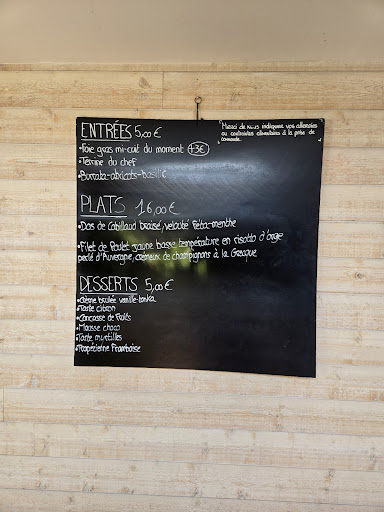 ENTRÉES 5,00 €
Merci de nous indiquer vos allergies
ou contraintes alimentaires à la prise de
commande.
•Foie gras mi-cuit du moment +3€
•Terrine du chef
•Burrata-abricots-basilic
PLATS 16,00 €
•Dos de Cabillaud braisé, velouté Feta-menthe
•Filet de Poulet jaune basse température en risotto d'orge
perlé d'Auvergne, crémeux de champignons à la Grecque
DESSERTS 5,00 €
•Crème brulée vanille-tonka
•Tarte citron
•Mousse choco
•Tarte myrtilles
Framboise